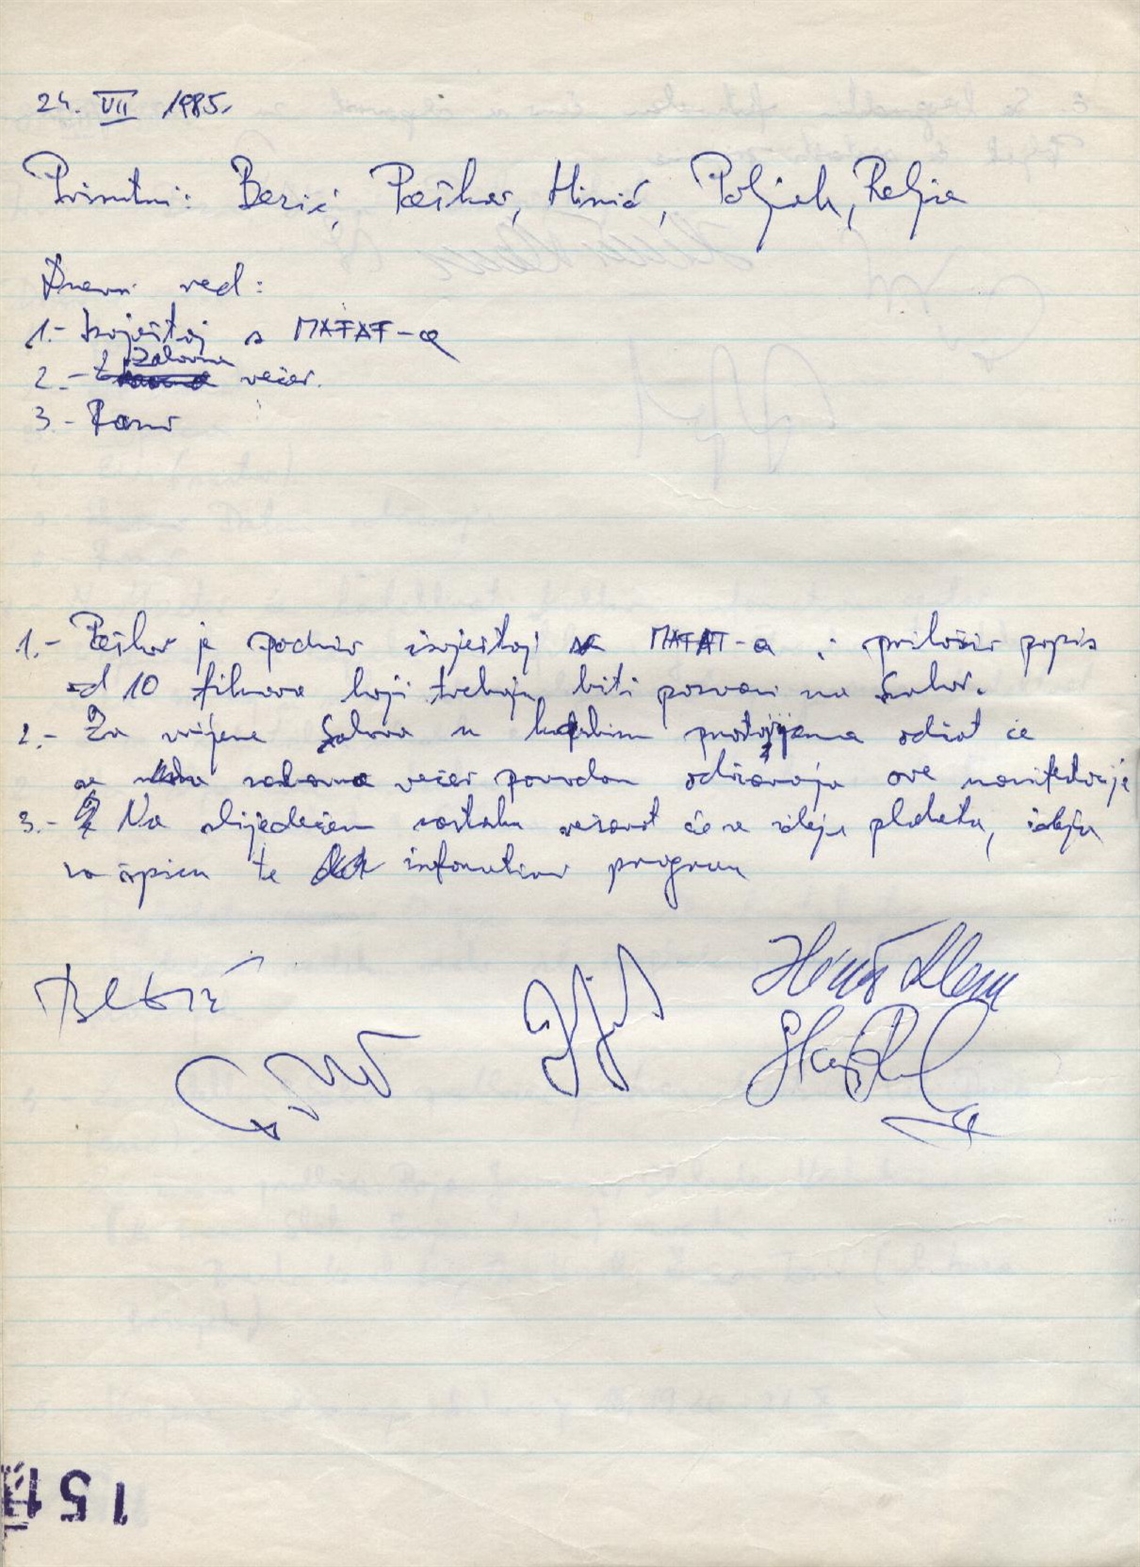 24. VII 1985.
Prisutni: Berić, Peškar, Hinić, Poljak, Relja
Dnevni red:
1.- Izvještaj s MAFAF-a
2.- Zabavna večer.
3.- Razno
1.- Peškar je podnio izvještaj sa MAFAF-a i priložio popis
od 10 filmova koji trebaju biti pozvani na Sabor.
2.- Za vrijeme Sabora u prostorijama održat će
se zabavna večer povodom održavanja ove manifestacije
3.- Na slijedećem sastanku će se ideja plakata, ideja
za špicu te informativni program
BERIĆ
151